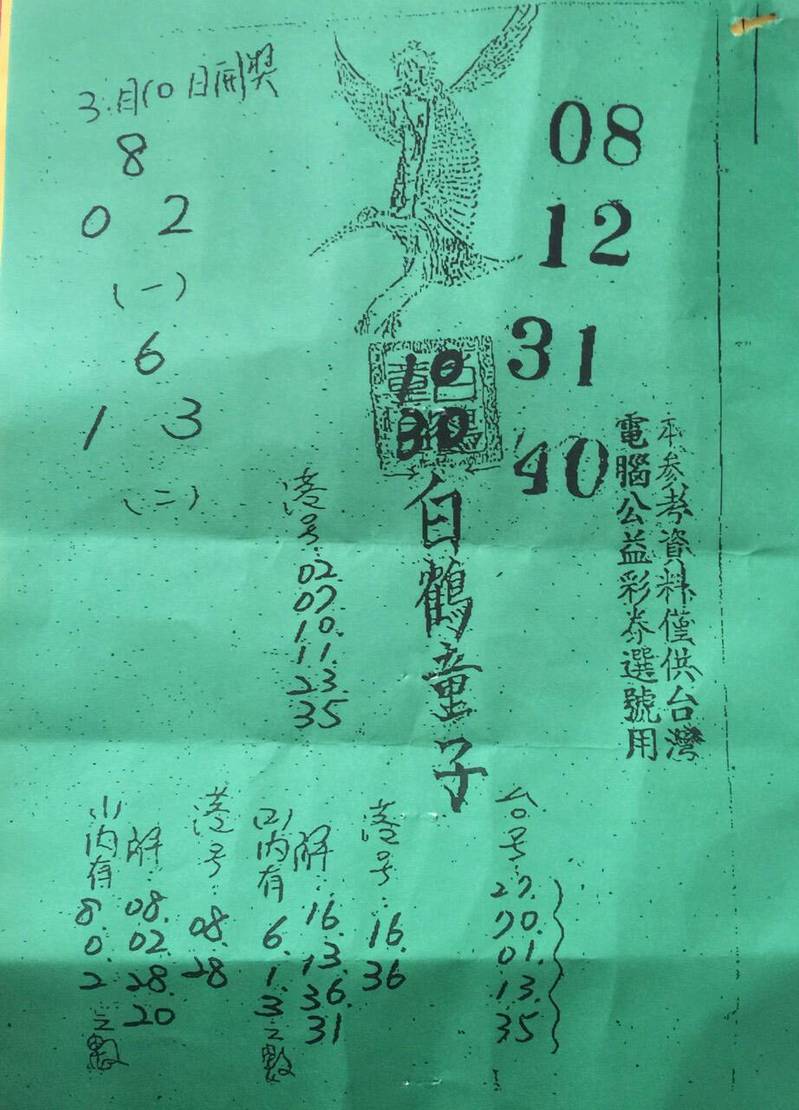 3月10日開獎
8
0 2
(一)
6
1 3
(二)
08
12
31
40
10
30
白鶴童子
本參考資料僅供台灣
電腦公益彩券選號用
港号:
02.
07.
10.
11.
23.
35
台号:
27.
70.
01.
13.
35
港号:
16.
36
(2)內有
6.
1.
3之數
解:
16.
13.
36.
31
港号:
08.
28
(1)內有
8.
0.
2之數
解:
08.
02.
28.
20